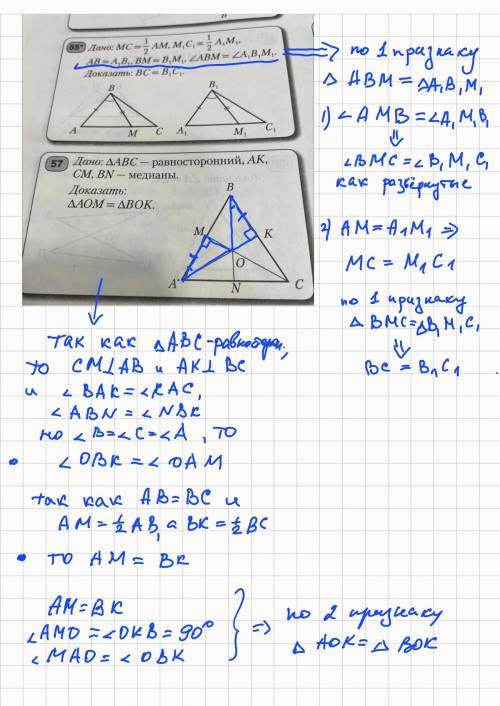 В
55* Дано: MC = 1/2 AM, M₁C₁ = 1/2 A₁M₁,
AB = A₁B₁, BM = B₁M₁, ∠ABM = ∠A₁B₁M₁.
Доказать: BC = B₁C₁.
B
A M C
B₁
A₁ M₁ C₁
57 Дано: △ABC — равносторонний, AK,
CM, BN — медианы.
Доказать:
△AOM = △BOK.
B
M K
O
A N C
по 1 признаку
△ ABM = △A₁B₁M₁
1) ∠AMB = ∠A₁M₁B₁
⇓
∠BMC = ∠B₁M₁C₁
как развёрнутые
2) AM = A₁M₁ ⇒
MC = M₁C₁
по 1 признаку
△ BMC = △B₁M₁C₁
⇓
BC = B₁C₁
так как △ABC - равносторон,
то CM⊥AB и AK⊥BC
и ∠BAK = ∠KAC,
∠ABN = ∠NBK
но ∠B = ∠C = ∠A, то
• ∠OBK = ∠OAM
так как AB = BC и
AM = 1/2 AB, а BK = 1/2 BC
• то AM = BK
AM = BK
∠AMO = ∠OKB = 90°
∠MAO = ∠OBK
⇒ по 2 признаку
△ AOK = △ BOK